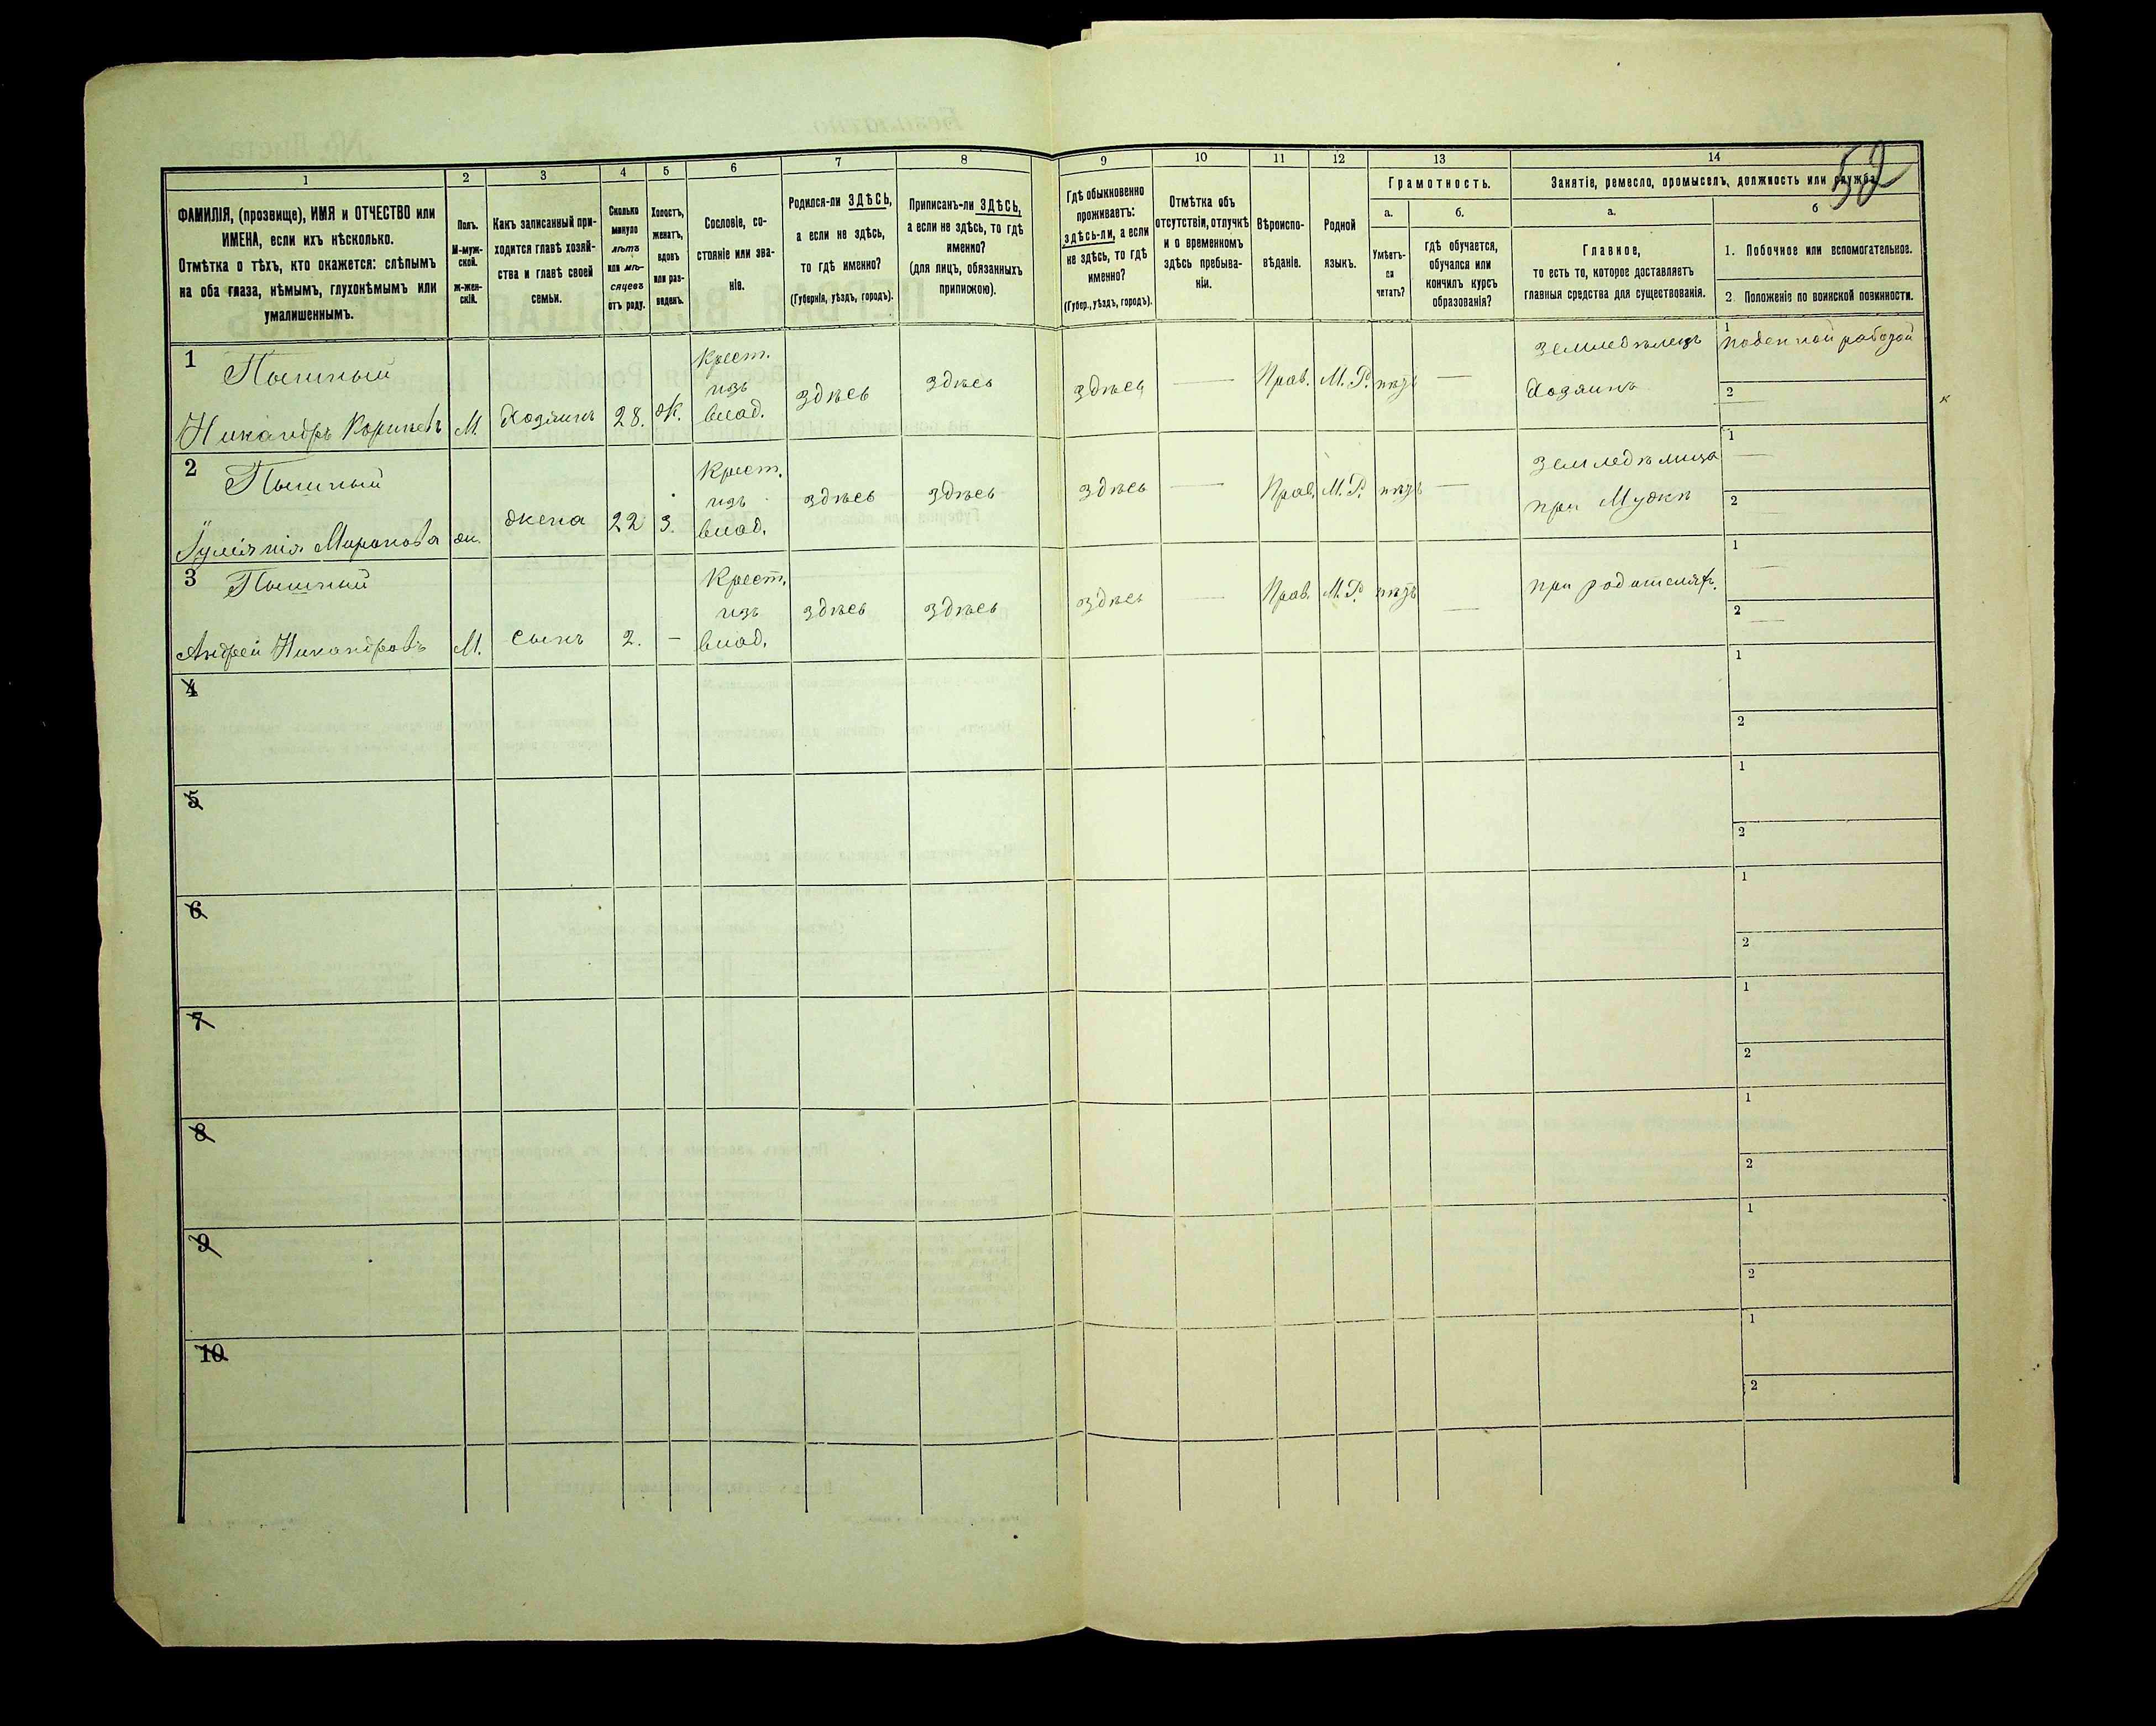 52
1 2 3 4 5 6 7 8 9 10 11 12 13 14
ФАМИЛІЯ, (прозвище), ИМЯ и ОТЧЕСТВО или
ИМЕНА, если ихъ нѣсколько.
Отмѣтка о тѣхъ, кто окажется: слѣпымъ
на оба глаза, нѣмымъ, глухонѣмымъ или
умалишеннымъ.
Полъ.
М-муж-
ской.
ж-жен-
скій.
Какъ записанный при-
ходится главѣ хозяй-
ства и главѣ своей
семьи.
Сколько
минуло
лѣтъ
или мѣ-
сяцевъ
отъ роду.
Холостъ,
женатъ,
вдовъ
или раз-
веденъ.
Сословіе, со-
стояніе или зва-
ніе.
Родился-ли ЗДѢСЬ,
а если не здѣсь,
то гдѣ именно?
(Губернія, уѣздъ, городъ).
Приписанъ-ли ЗДѢСЬ,
а если не здѣсь, то гдѣ
именно?
(для лицъ, обязанныхъ
припискою).
Гдѣ обыкновенно
проживаетъ:
здѣсь-ли, а если
не здѣсь, то гдѣ
именно?
(Губер., уѣздъ, городъ).
Отмѣтка объ
отсутствіи, отлучкѣ
и о временномъ
здѣсь пребыва-
ніи.
Вѣроиспо-
вѣданіе.
Родной
языкъ.
Грамотность.
а.
Умѣетъ-
ли
читать?
б.
гдѣ обучается,
обучался или
кончилъ курсъ
образованія?
Занятіе, ремесло, промыселъ, должность или служба.
а.
Главное,
то есть то, которое доставляетъ
главныя средства для существованія.
б
1. Побочное или вспомогательное.
2. Положеніе по воинской повинности.
1 Пышный
Никандръ М. Хозяинъ 28. Ж. Крест. изъ влад. здѣсь здѣсь здѣсь — Прав. М.Р. нѣтъ — Земледѣлецъ Хозяинъ 1 поденной работой 2 —
2 Пышный
Миронова ж. жена 22 З. Крест. изъ влад. здѣсь здѣсь здѣсь — Прав. М.Р. нѣтъ — Земледѣлица при Мужѣ 1 — 2 —
3 Пышный
Андрей Никандровъ М. Сынъ 2. – Крест. изъ влад. здѣсь здѣсь здѣсь — Прав. М.Р. нѣтъ — при родителяхъ. 1 — 2 —
4 1 2
5 1 2
6 1 2
7 1 2
8 1 2
9 1 2
10 1 2